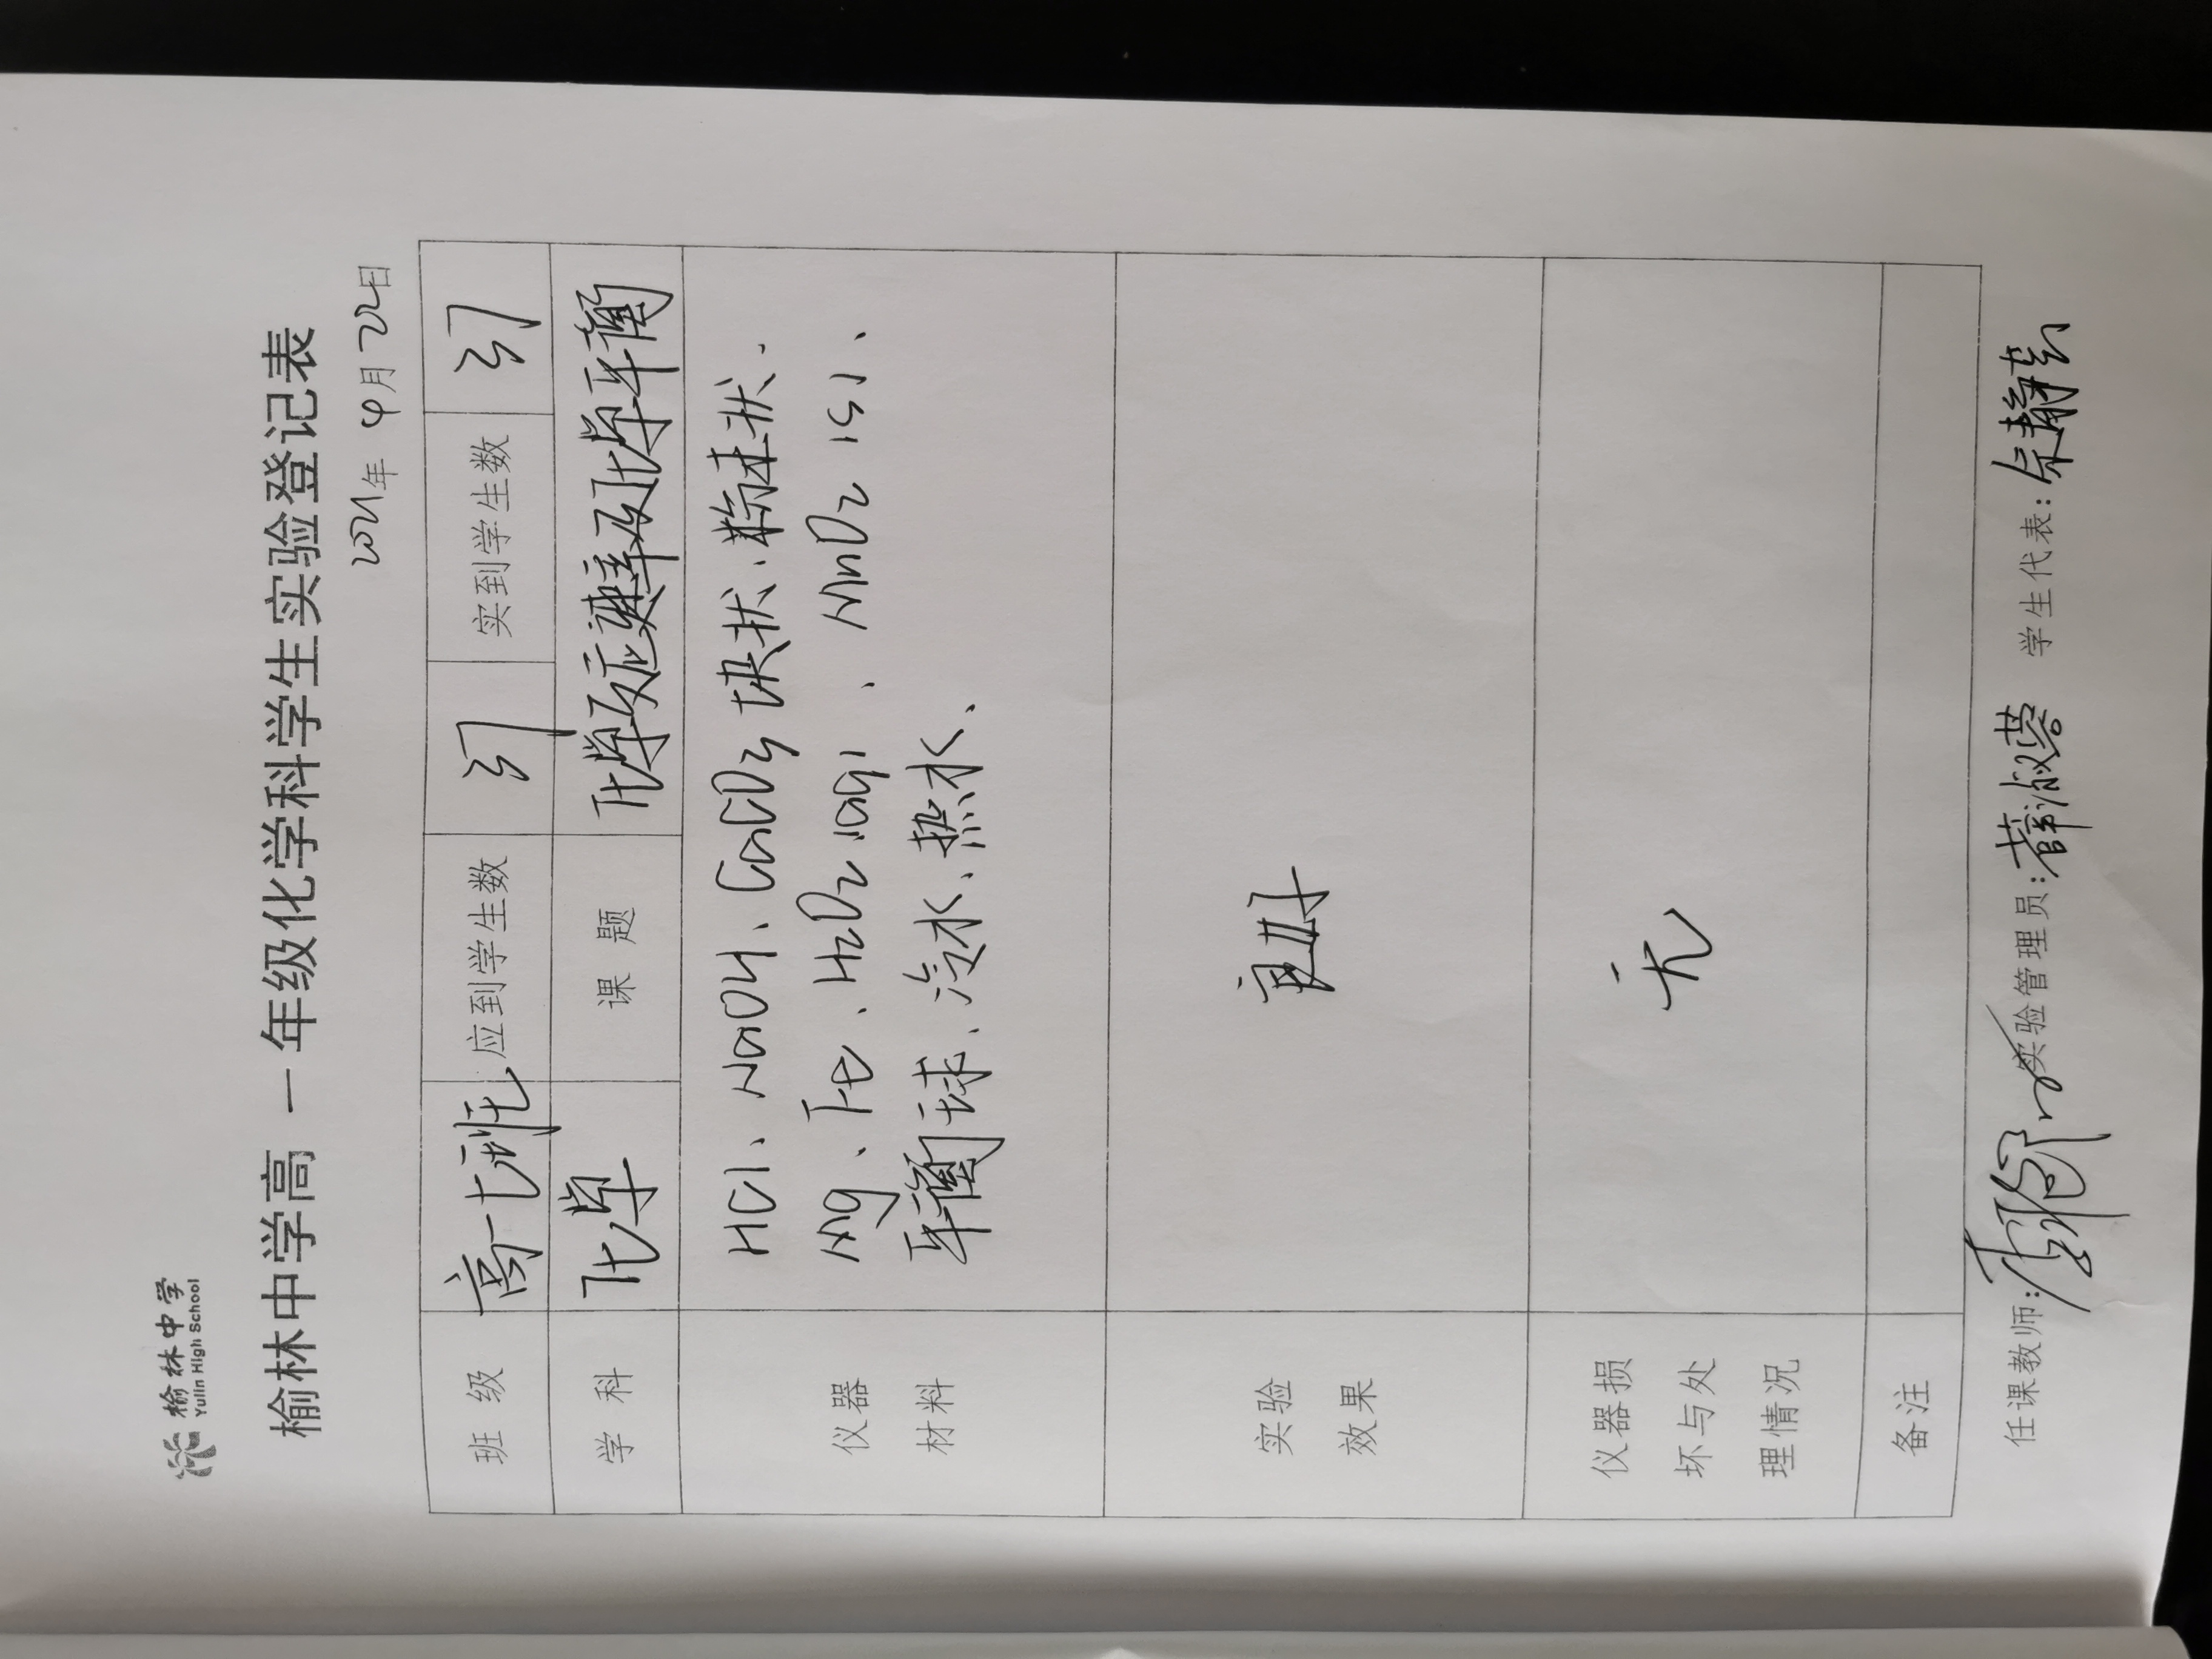 榆林中学
Yulin High School
榆林中学高一年级化学科学生实验登记表
2021年 4月 22日
班 级 高一七班 应到学生数 57 实到学生数 57
学 科 化学 课 题 化学反应速率及化学平衡
仪器 材料
HCl、NaOH、CaCO3 块状、粉末状、
Mg、Fe、H2O2 (aq)、MnO2 (s)、
平衡球、冷水、热水、
实验 效果
良好
仪器损 坏与处 理情况
无
备注
任课教师: 实验管理员:薛淑蓉 学生代表: